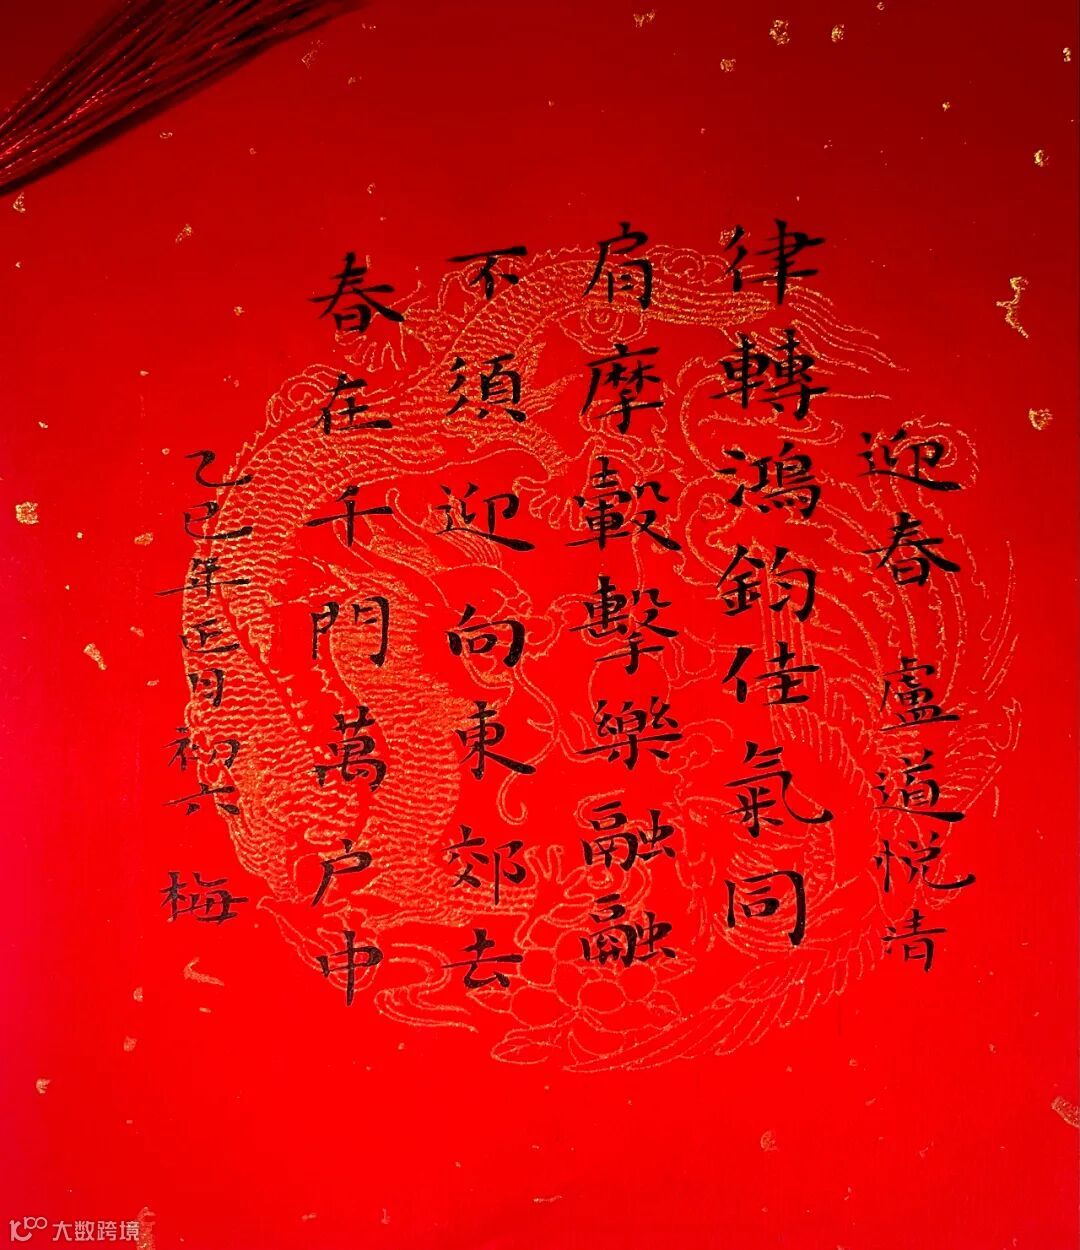 迎春 盧道悦 清
律轉鴻鈞佳氣同
肩摩轂擊樂融融
不須迎向東郊去
春在千門萬户中
乙巳年正月初六 梅
大数跨境